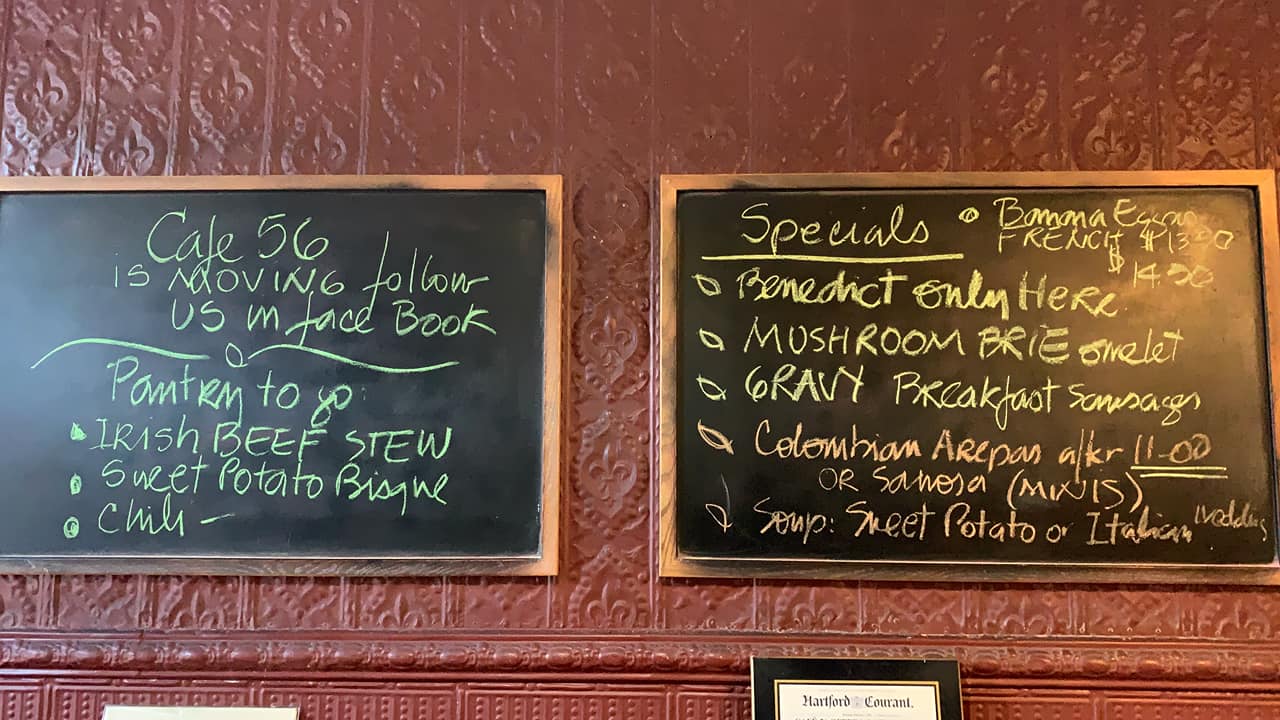 Cafe 56
is MOVING follow
US in face Book
Pantry to go:
IRISH BEEF STEW
Sweet Potato Bisque
Chili -
Specials
Banana
FRENCH $13
$14.50
Benedict only Here.
MUSHROOM BRIE omelet
GRAVY Breakfast Sausages
Colombian Arepas after 11-00
OR Samosa (MINIS)
Soup: Sweet Potato or Italian Wedding
Hartford Courant.